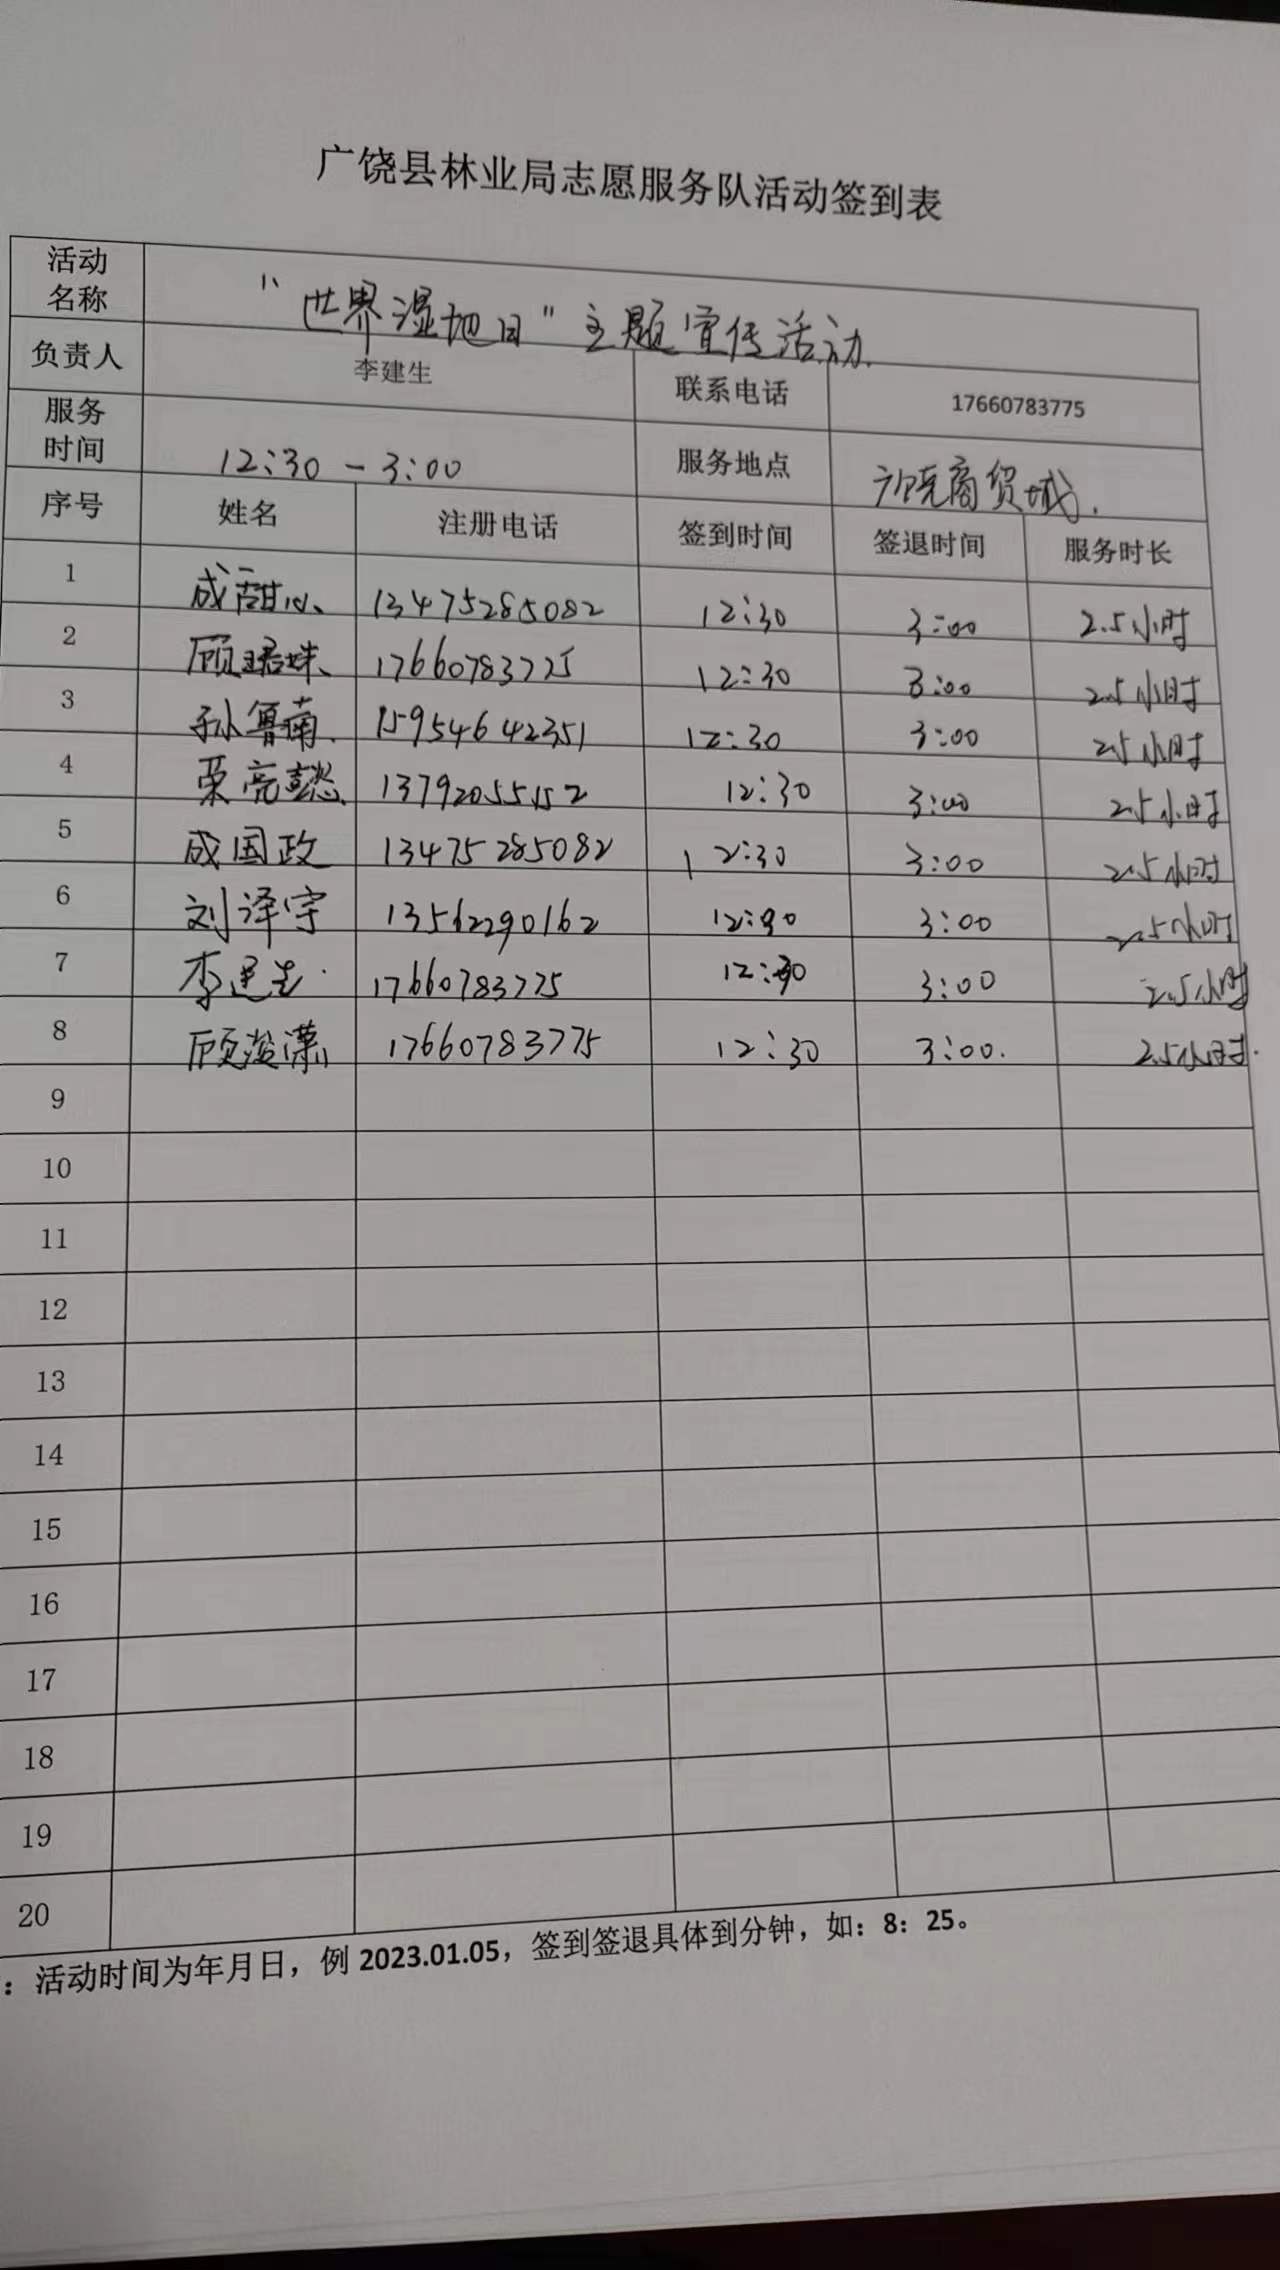 广饶县林业局志愿服务队活动签到表
活动名称 “世界湿地日”主题宣传活动.
负责人 李建生 联系电话 17660783775
服务时间 12:30-3:00 服务地点 广饶商贸城.
序号 姓名 注册电话 签到时间 签退时间 服务时长
1 成甜心 13475285082 12:30 3:00 2.5小时
2 顾珺姝 17660783775 12:30 3:00 2.5小时
3 孙鲁南. 15954642351 12:30 3:00 2.5小时
4 荣亮懿 13792055152 12:30 3:00 2.5小时
5 成国政 13475285082 12:30 3:00 2.5小时
6 刘泽宇 13562290162 12:30 3:00 2.5小时
7 李建生 17660783775 12:30 3:00 2.5小时
8 顾浚潇 17660783775 12:30 3:00. 2.5小时.
9
10
11
12
13
14
15
16
17
18
19
20
：活动时间为年月日，例 2023.01.05，签到签退具体到分钟，如：8：25。